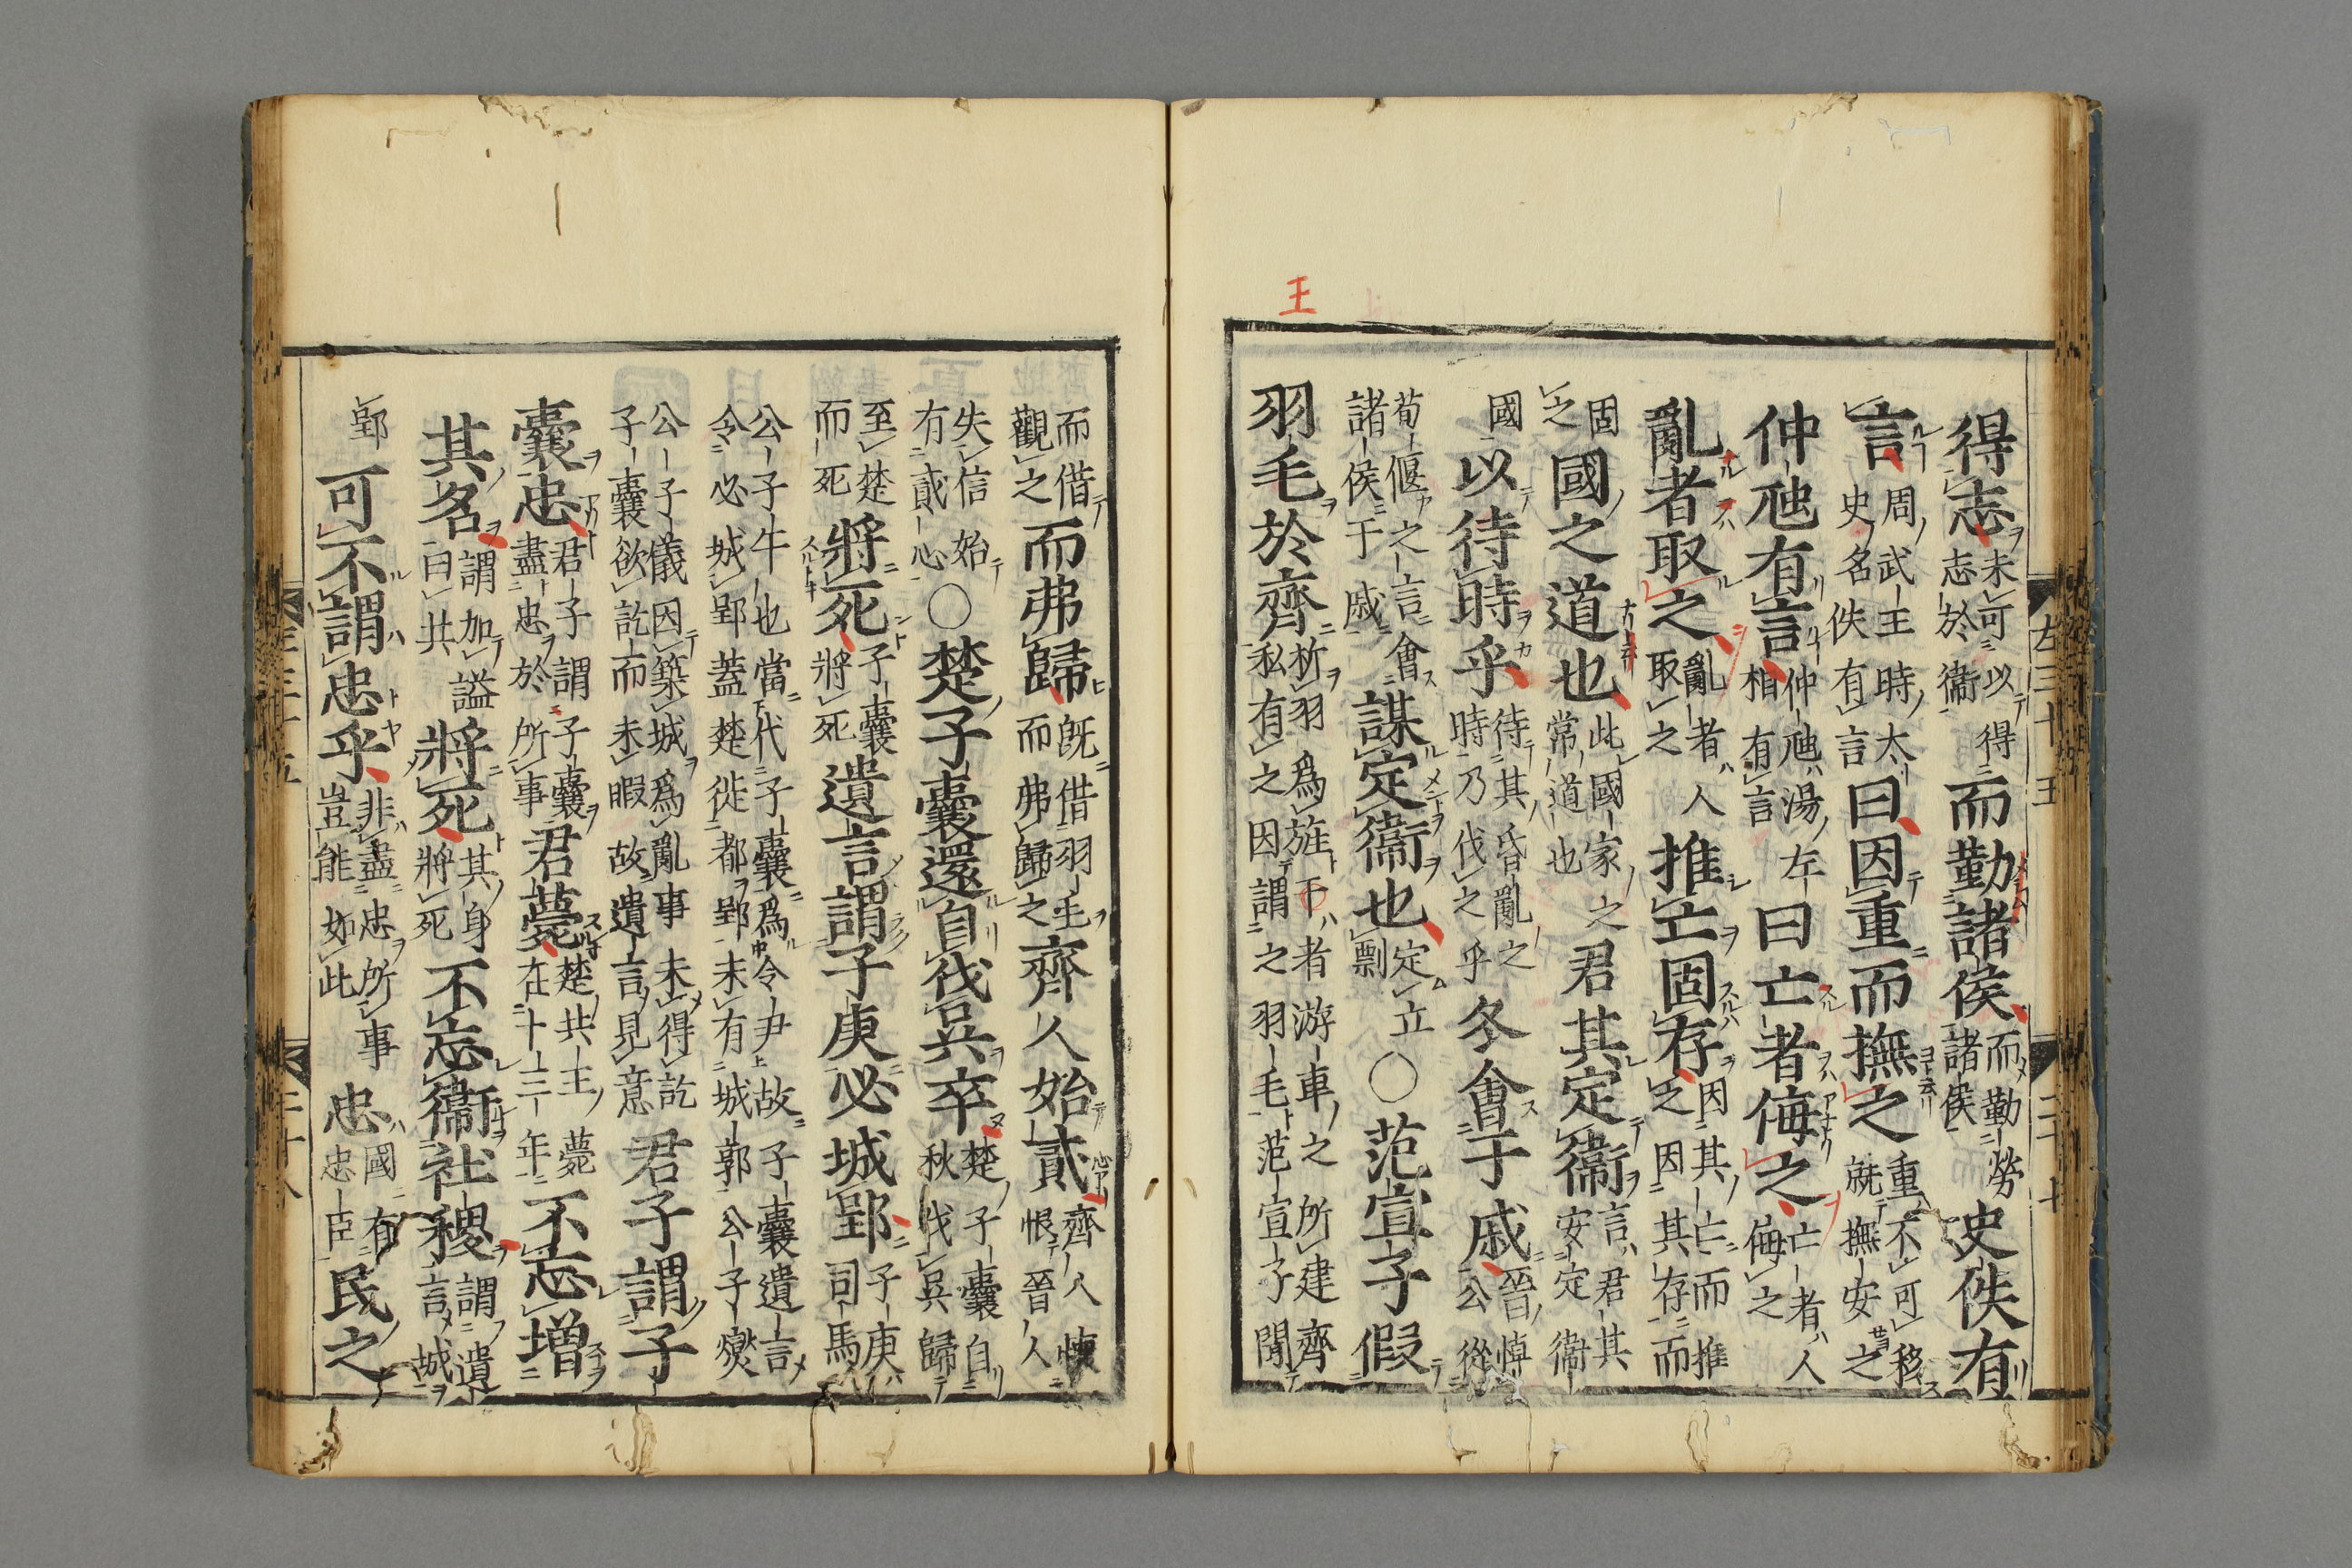 王
左三十五 二十七
得志未可以得志於衞而勤諸侯而勤勞諸侯史佚有
言周武王時太史名佚有言曰因重而撫之重不可移就撫安之
仲虺有言仲虺湯左相有言曰亡者侮之亡者人侮之
亂者取之亂者人取之推亡固存因其亡而推之因其存而
固之國之道也此國家之常道也君其定衞言君其安定衞
國以待時乎待其昏亂之時乃伐之乎冬會于戚晉悼公從
荀偃之言會諸侯于戚謀定衞也定立剽○范宣子假
羽毛於齊析羽爲旌干者游車之所建齊私有之因謂之羽毛范宣子聞
而借觀之而弗歸既借羽毛而弗歸之齊人始貳齊人懷恨晉人
失信始有貳心○楚子囊還自伐吳卒楚子囊自秋伐吳歸
至楚而死將死子囊將死遺言謂子庚必城郢子庚司馬
公子午也當代子囊爲令尹故子囊遺言令必城郢蓋楚徙都郢未有城郭公子燮
公子儀因築城爲亂事未得訖子囊欲訖而未暇故遺言見意君子謂子
囊忠君子謂子囊盡忠於所事君薨楚共王薨在十三年不忘增
其名謂加謚曰共將死其身將死不忘衞社稷謂遺言城
郢可不謂忠乎非盡忠所事豈能如此忠國有忠臣民之